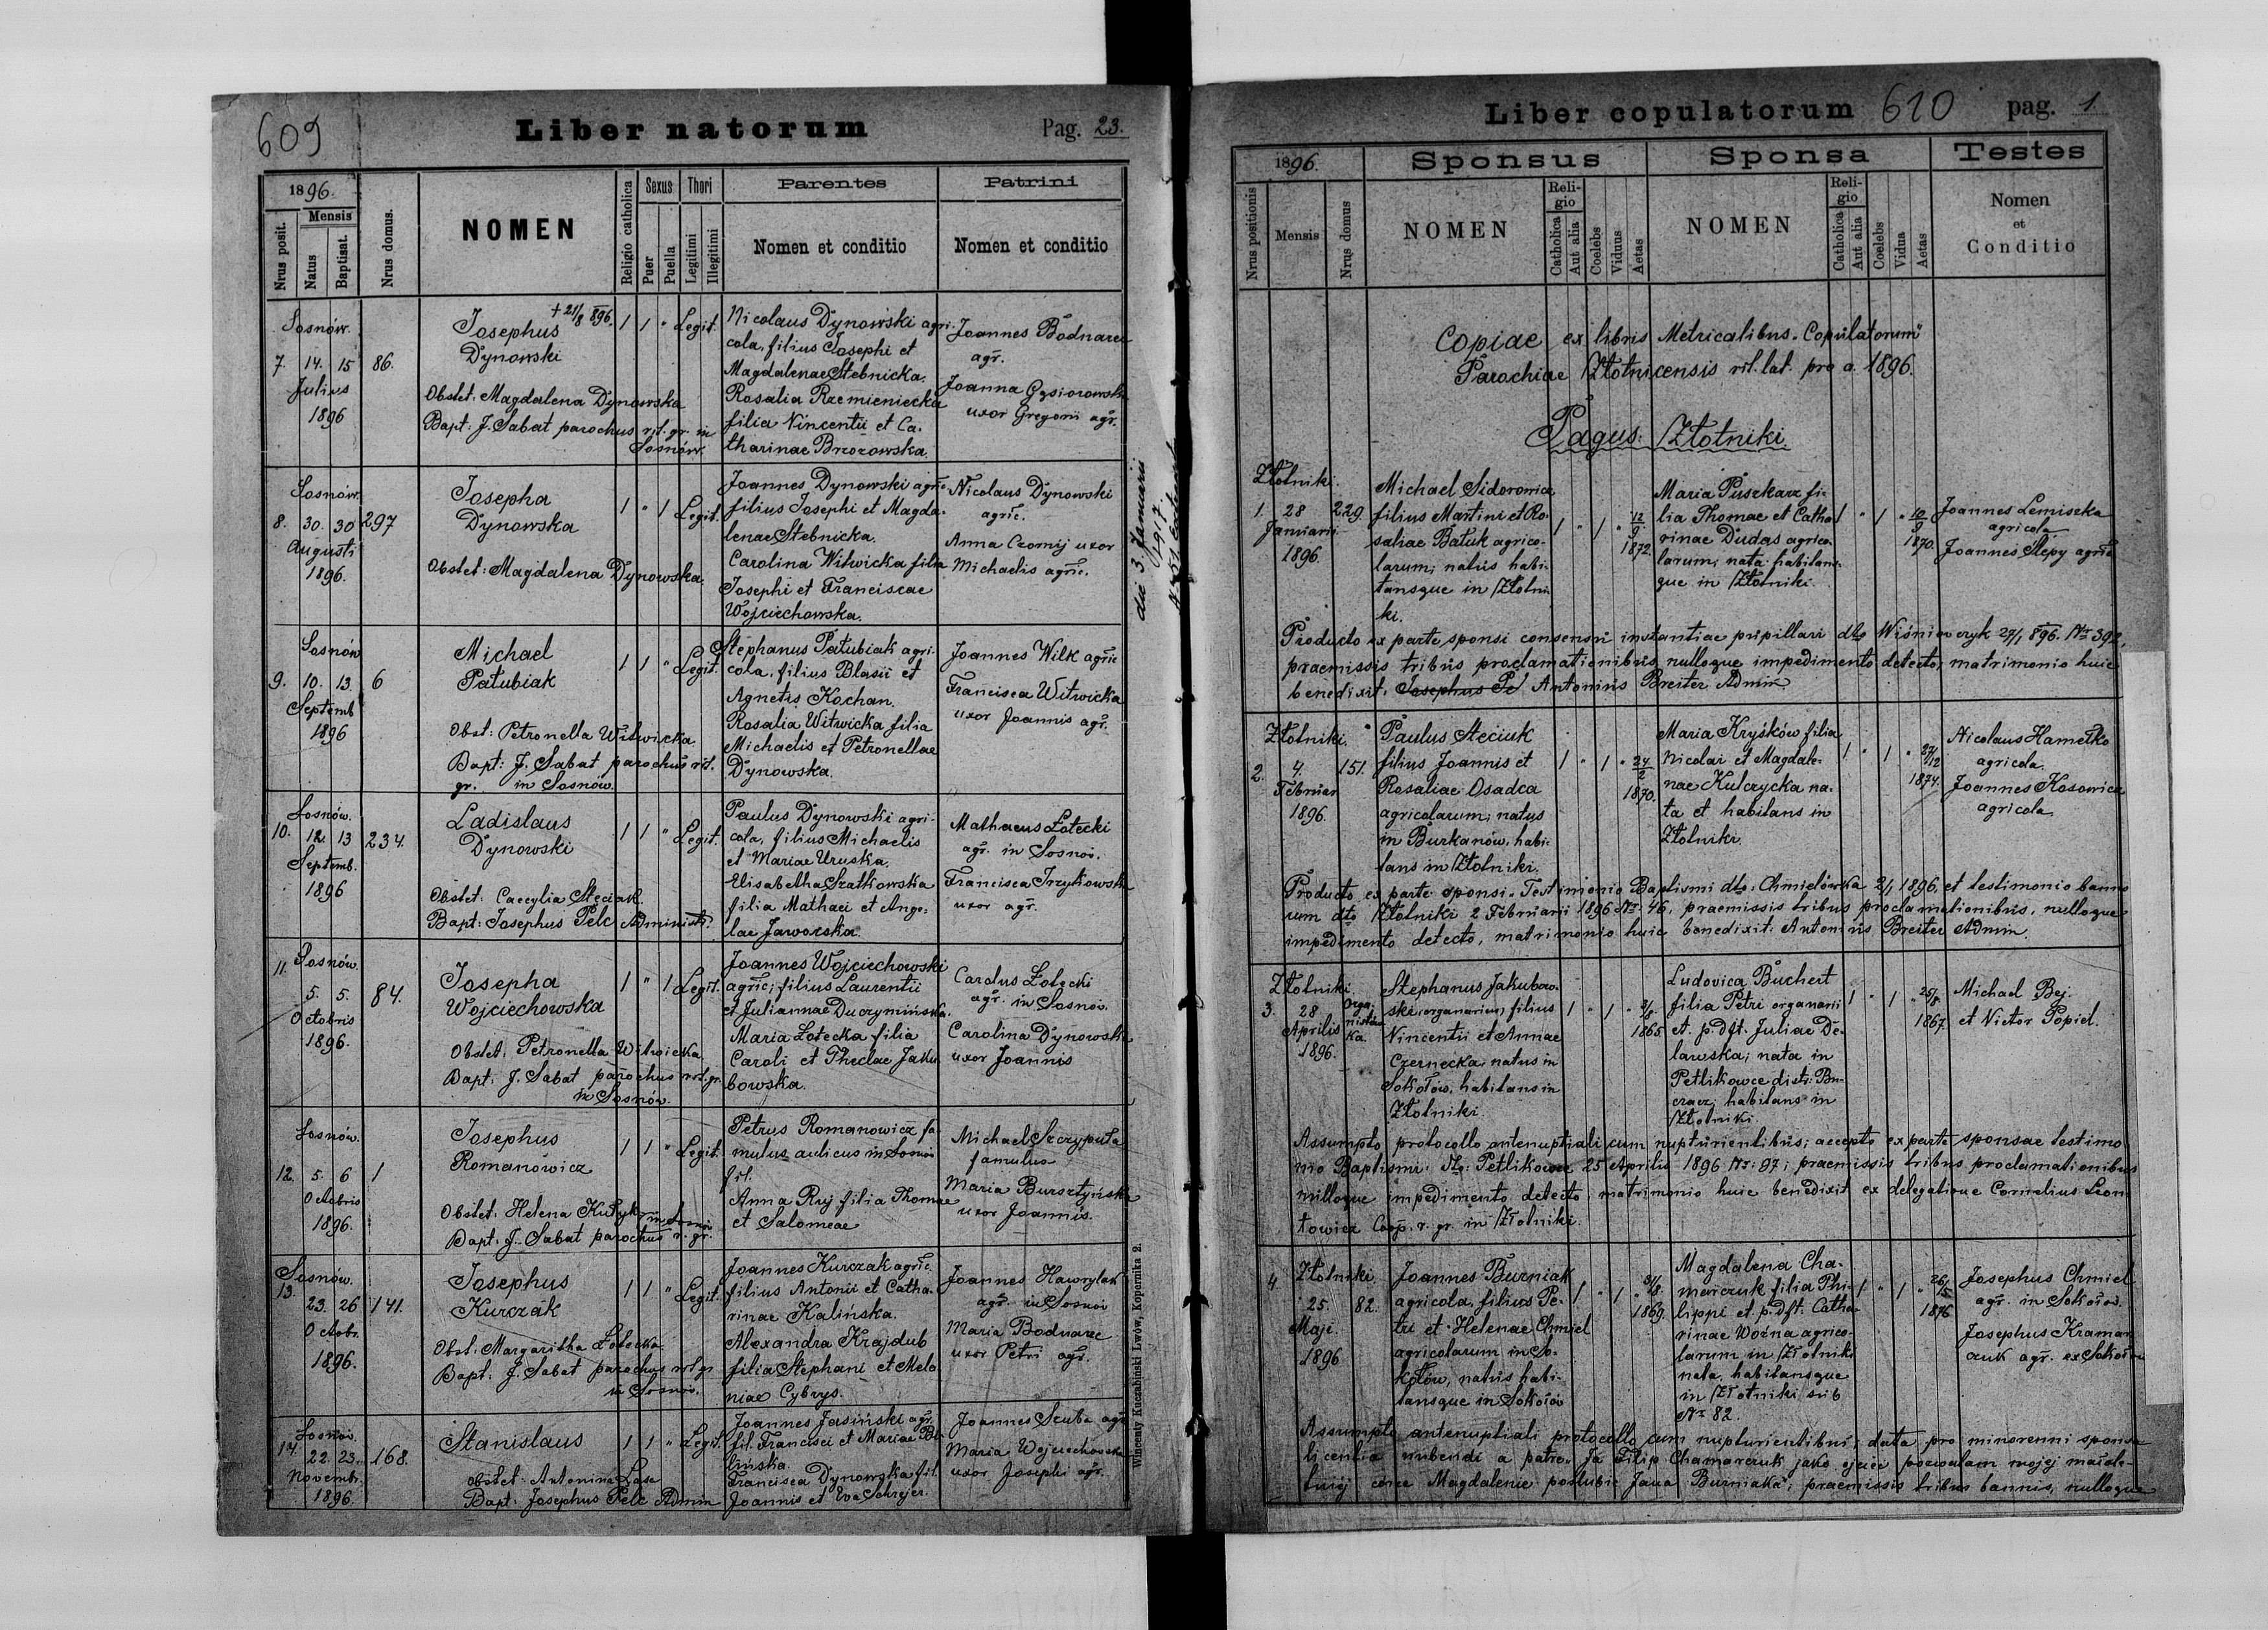 609
Liber natorum
Pag. 23.
1896.
Nrus posit.
Mensis
Natus
Baptisat.
Nrus domus.
NOMEN
Religio catholica
Sexus
Puer
Puella
Thori
Legitimi
Illegitimi
Parentes
Nomen et conditio
Patrini
Nomen et conditio
Sosnów.
7. 14. 15 86.
Julius
1896
Josephus +21/8 896.
Dynowski
Obstet: Magdalena Dynowska
Bapt: J. Sabat parochus rit. gr. in
Sosnów.
1 1 " Legit.
Nicolaus Dynowski agri-
cola, filius Josephi et
Magdalenae Stebnicka.
Rosalia Rzemieniecka
filia Vincentii et Ca-
tharinae Brzozowska.
Joannes Bodnarec
agr.
Joanna Gąsiorowska
uxor Gregorii agr.
Sosnów.
8. 30. 30 297
Augusti
1896.
Josepha
Dynowska
Obstet: Magdalena Dynowska.
1 " 1 Legit.
Joannes Dynowski agric.
filius Josephi et Magda-
lenae Stebnicka.
Carolina Witwicka filia
Josephi et Franciscae
Wojciechowska.
Nicolaus Dynowski
agric.
Anna Czornij uxor
Michaelis agric.
die 3 Januarii
1917.
Sosnów
9. 10. 13. 6
Septemb
1896
Michael
Pałubiak
Obst: Petronella Witwicka
Bapt: J. Sabat parochus rit.
gr. in Sosnów.
1 1 " Legit.
Stephanus Pałubiak agri-
cola, filius Blasii et
Agnetis Kochan.
Rosalia Witwicka filia
Michaelis et Petronellae
Dynowska.
Joannes Wilk agric
Francisca Witwicka
uxor Joannis agr.
Sosnów.
10. 12. 13 234.
Septemb.
1896
Ladislaus
Dynowski
Obstet: Caecylia Steciak.
Bapt: Josephus Pelc Administr.
1 1 " Legit.
Paulus Dynowski agri-
cola, filius Michaelis
et Mariae Uruska.
Elisabetha Szatkowska
filia Mathaei et Ange-
lae Jaworska.
Mathaeus Łotecki
agr. in Sosnów.
Francisca Irzykowska
uxor agr.
11. Sosnów.
5. 5. 84.
Octobris
1896.
Josepha
Wojciechowska
Obstet: Petronella Witwicka.
Bapt: J. Sabat parochus rit. gr.
in Sosnów.
1 " 1 Legit.
Joannes Wojciechowski
agric; filius Laurentii
et Juliannae Duczymińska.
Maria Łotecka filia
Caroli et Theclae Jaku-
bowska.
Carolus Łotecki
agr. in Sosnów.
Carolina Dynowska
uxor Joannis
Sosnów.
12. 5. 6 1
Octobris
1896.
Josephus
Romanowicz
Obstet: Helena Kułyk
Bapt: J. Sabat parochus r. gr. in Sosnów
1 1 " Legit.
Petrus Romanowicz fa-
mulus aulicus in Sosnów
fil.
Anna Ryj filia Thomae
et Salomeae
Michael Szczyputa
famulus
Maria Bursztyńska
uxor Joannis.
Sosnów.
13.
23. 26 141.
Octobr.
1896.
Josephus
Kurczak
Obst: Margaritha Łotecka
Bapt: J. Sabat parochus rit. gr
in Sosnów.
1 1 " Legit.
Joannes Kurczak agric.
filius Antonii et Catha-
rinae Kalińska.
Alexandra Krajdub
filia Stephani et Mela-
niae Cybrys.
Joannes Hawrylak
agr. in Sosnów
Maria Bodnarec
uxor Petri agr.
Sosnów.
14. 22. 23. 168.
Novemb.
1896.
Stanislaus
Obstet: Antonina Łasa
Bapt: Josephus Pelc Admin
1 1 " Legit.
Joannes Jasiński agr.
fil. Francisci et Mariae Bi-
lińska.
Francisca Dynowska fil.
Joannis et Eva Schreyer.
Joannes Szuba agr
Maria Wojciechowska
uxor Josephi agr.
Wincenty Kuczabiński Lwów, Kopernika 2.
Liber copulatorum 610 pag. 1
1896.
Nrus positionis
Mensis
Nrus domus
Sponsus
NOMEN
Religio
Catholica
Aut alia
Coelebs
Viduus
Aetas
Sponsa
NOMEN
Religio
Catholica
Aut alia
Coelebs
Vidua
Aetas
Testes
Nomen
et
Conditio
Copiae ex libris Metricalibus "Copulatorum"
Parochiae Złotnicensis rit. lat. pro a. 1896.
Pagus: Złotniki.
Złotniki.
1. 28 229.
Januarii
1896.
Michael Sidorowicz
filius Martini et Ro-
saliae Batuk agrico-
larum; natus habi-
tansque in Złotni-
ki.
1 " 1 " 12/9 1872.
Maria Puszkarz fi-
lia Thomae et Catha-
rinae Dudas agrico-
larum; nata habitans-
que in Złotniki.
1 " 1 " 12/9 1870.
Joannes Lemiszka
agricola
Joannes Ślepy agric
Producto ex parte sponsi consensu instantiae pupillari dto Wiśniowczyk 27/1 896. No 392,
praemissis tribus proclamationibus, nulloque impedimento detecto, matrimonio huic
benedixit. Josephus Pe Antonius Breiter Admin.
Złotniki.
2. 4. 151.
Februar
1896.
Paulus Steciuk
filius Joannis et
Rosaliae Osadca
agricolarum; natus
in Burkanów, habi-
tans in Złotniki.
1 " 1 " 24/2 1870.
Maria Kryśków filia
Nicolai et Magdale-
nae Kulczycka na-
ta et habitans in
Złotniki.
1 " 1 " 27/12 1874.
Nicolaus Hamelko
agricola.
Joannes Kosowicz
agricola
Producto ex parte sponsi Testimonio Baptismi dto: Chmielówka 2/1 1896. et testimonio banno-
rum dto Złotniki 2 Februarii 1896 No: 46, praemissis tribus proclamationibus, nulloque
impedimento detecto, matrimonio huic benedixit: Antonius Breiter Admin.
Złotniki.
3. 28 Orga-
nistów-
ka.
Aprilis
1896.
Stephanus Jakubow-
ski (organarius) filius
Vincentii et Annae
Czernecka natus in
Sokołów, habitans in
Złotniki.
1 " 1 " 2/8 1865.
Ludovica Buchert
filia Petri organarii
et p. dft. Juliae De-
lawska; nata in
Petlikowce distr: Bu-
czacz; habitans in
Złotniki
1 " 1 " 25/8 1867.
Michael Bej.
et Victor Popiel.
Assumpto protocollo antenuptiali cum nupturientibus; accepto ex parte sponsae testimo-
nio Baptismi dto: Petlikowce 25 Aprilis 1896 No: 97; praemissis tribus proclamationibus
nulloque impedimento detecto, matrimonio huic benedixit ex delegatione Cornelius Leon-
towicz Coop. r. gr. in Złotniki.
4 Złotniki.
25. 82.
Maji.
1896
Joannes Burniak
agricola, filius Pe-
tri et Helenae Chmiel
agricolarum in So-
kołów, natus habi-
tansque in Sokołów
1 " 1 " 31/8 1869.
Magdalena Cha-
marczuk filia Phi-
lippi et p. dft: Catha-
rinae Woźna agrico-
larum in Złotniki
nata, habitansque
in Złotniki sub
No 82.
1 " 1 " 26/5 1876
Josephus Chmiel
agr. in Sokołów.
Josephus Kramar-
czuk agr. ex Sokołów
Assumpto antenuptiali protocollo cum nupturientibus; data pro minorenni sponsa
licentia nubendi a patre: "Ja Filip Chamarczuk jako ojciec pozwalam mojej małole-
tniej córce Magdalenie poślubić Jana Burniaka"; praemissis tribus bannis, nulloque